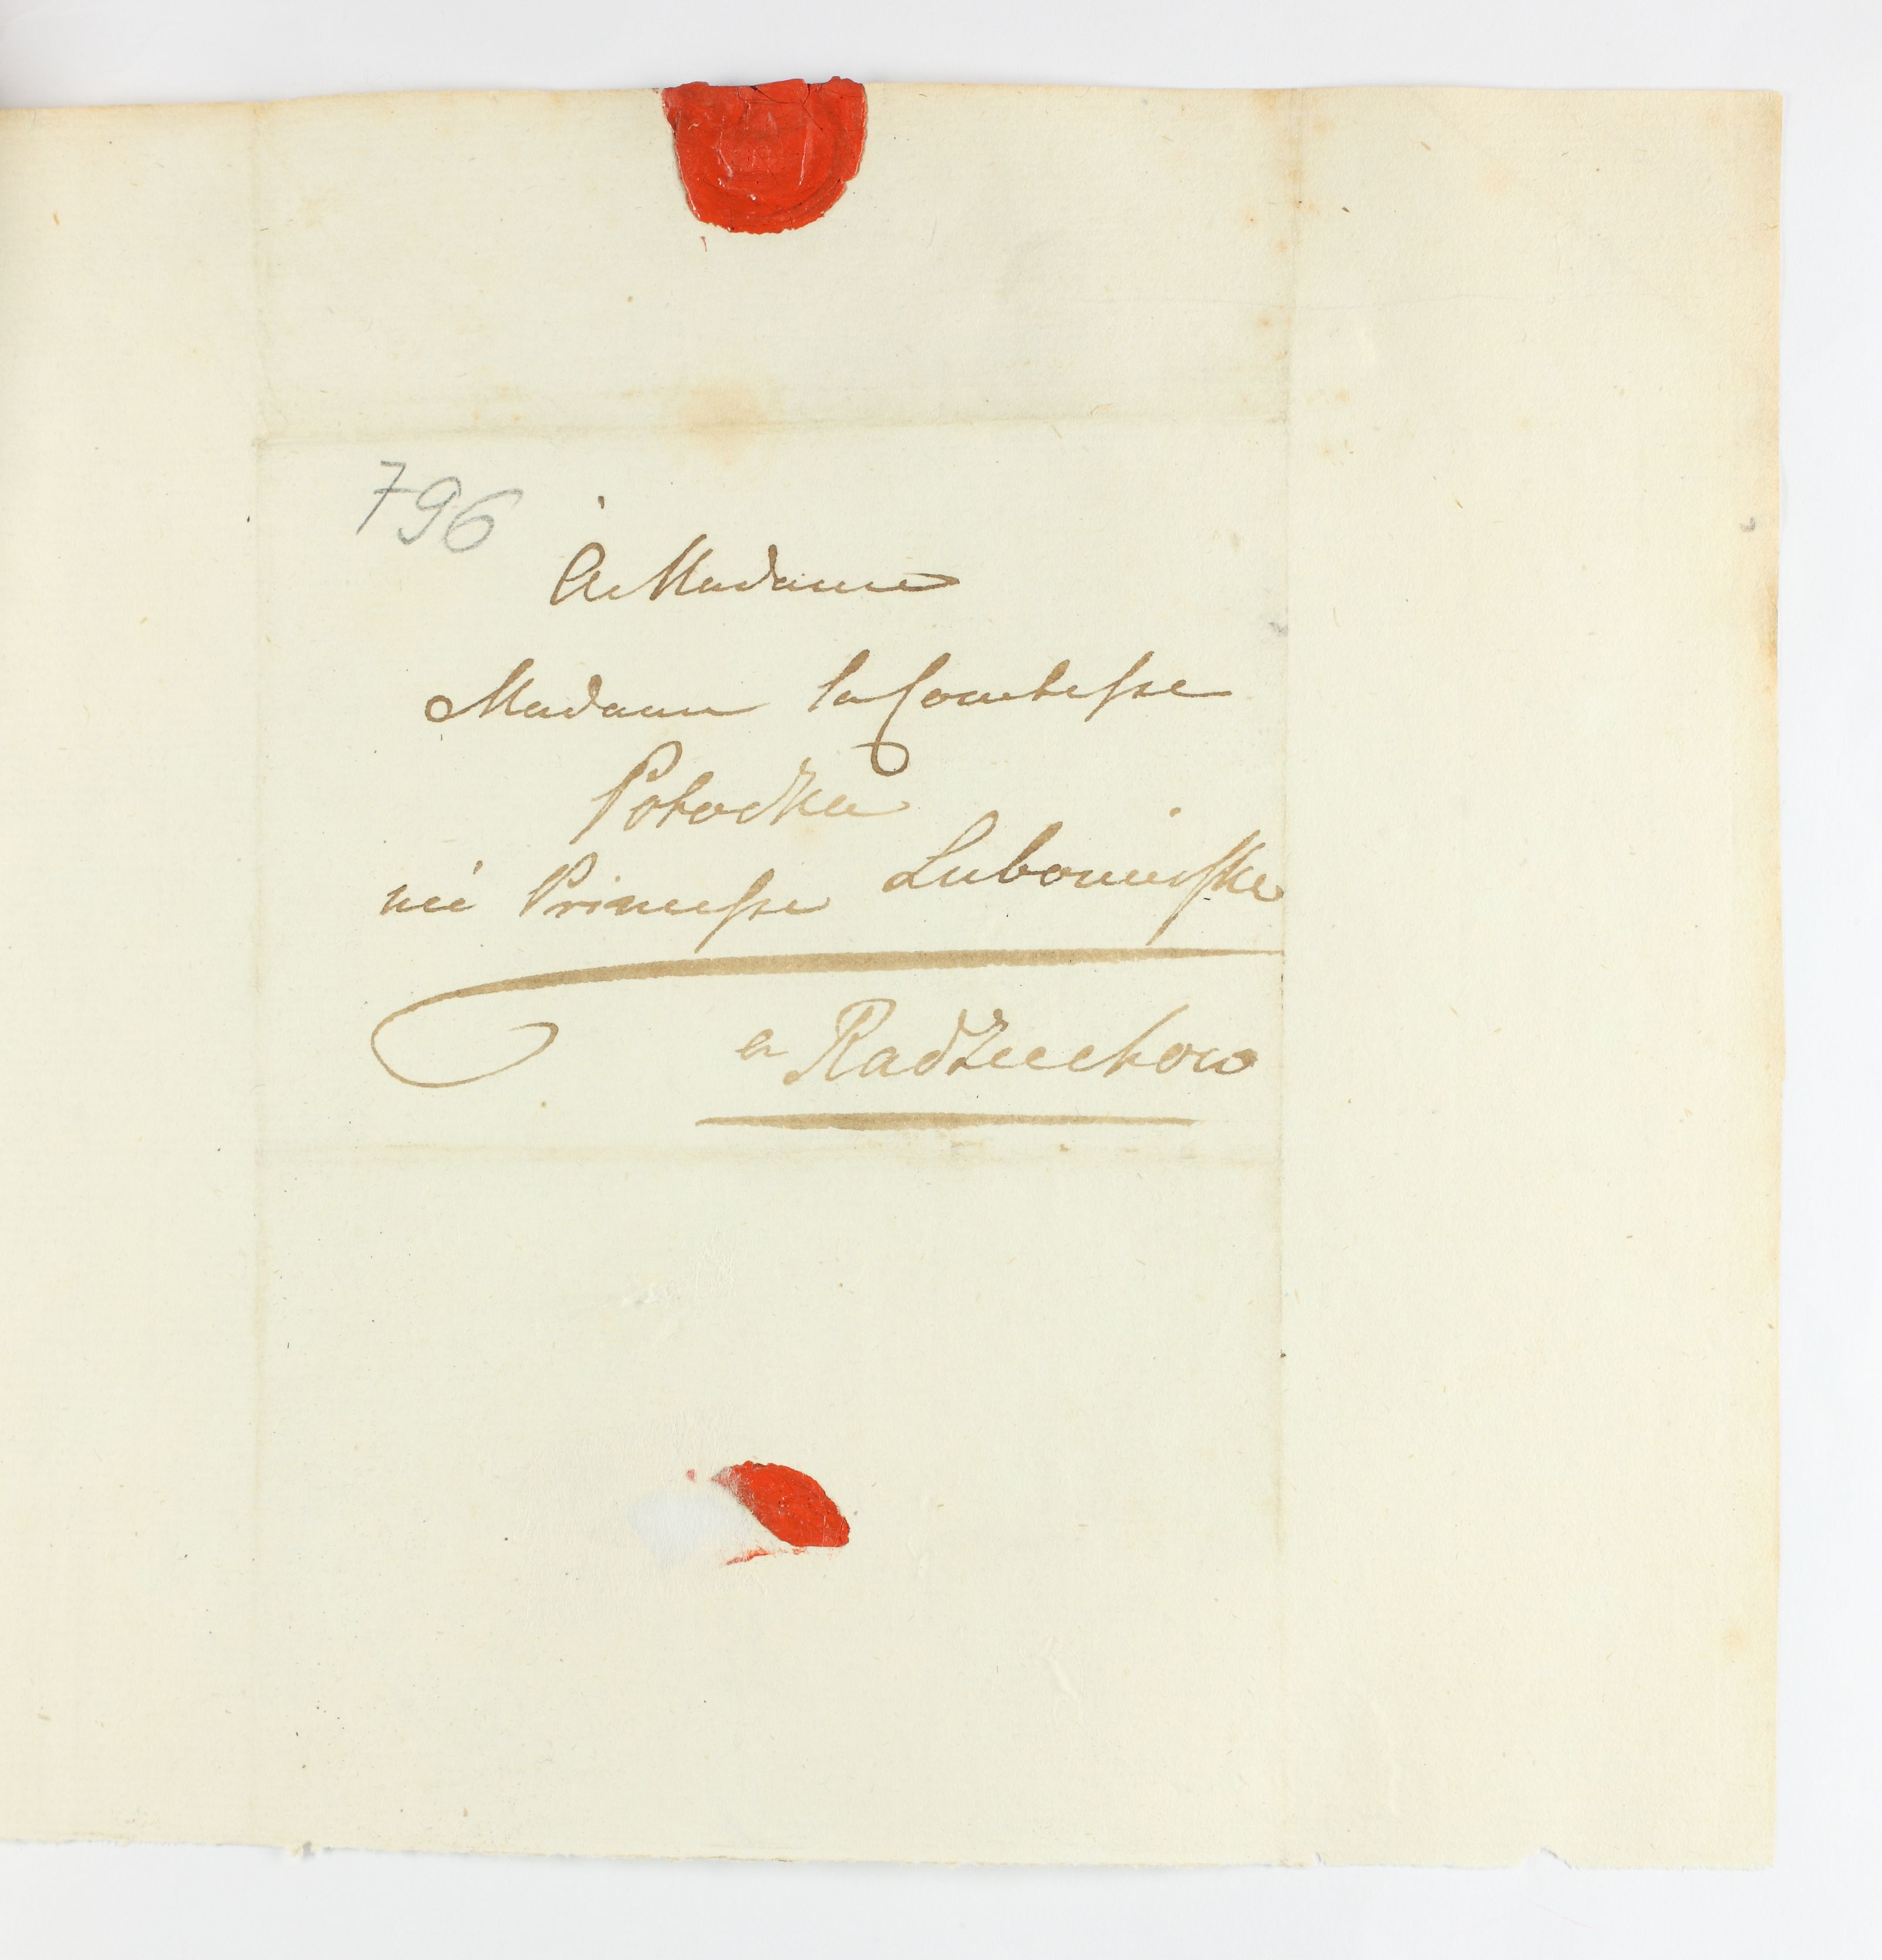 796
À Madame
Madame la Comtesse
Potocka
née Princesse Lubomirska
a Radziechow